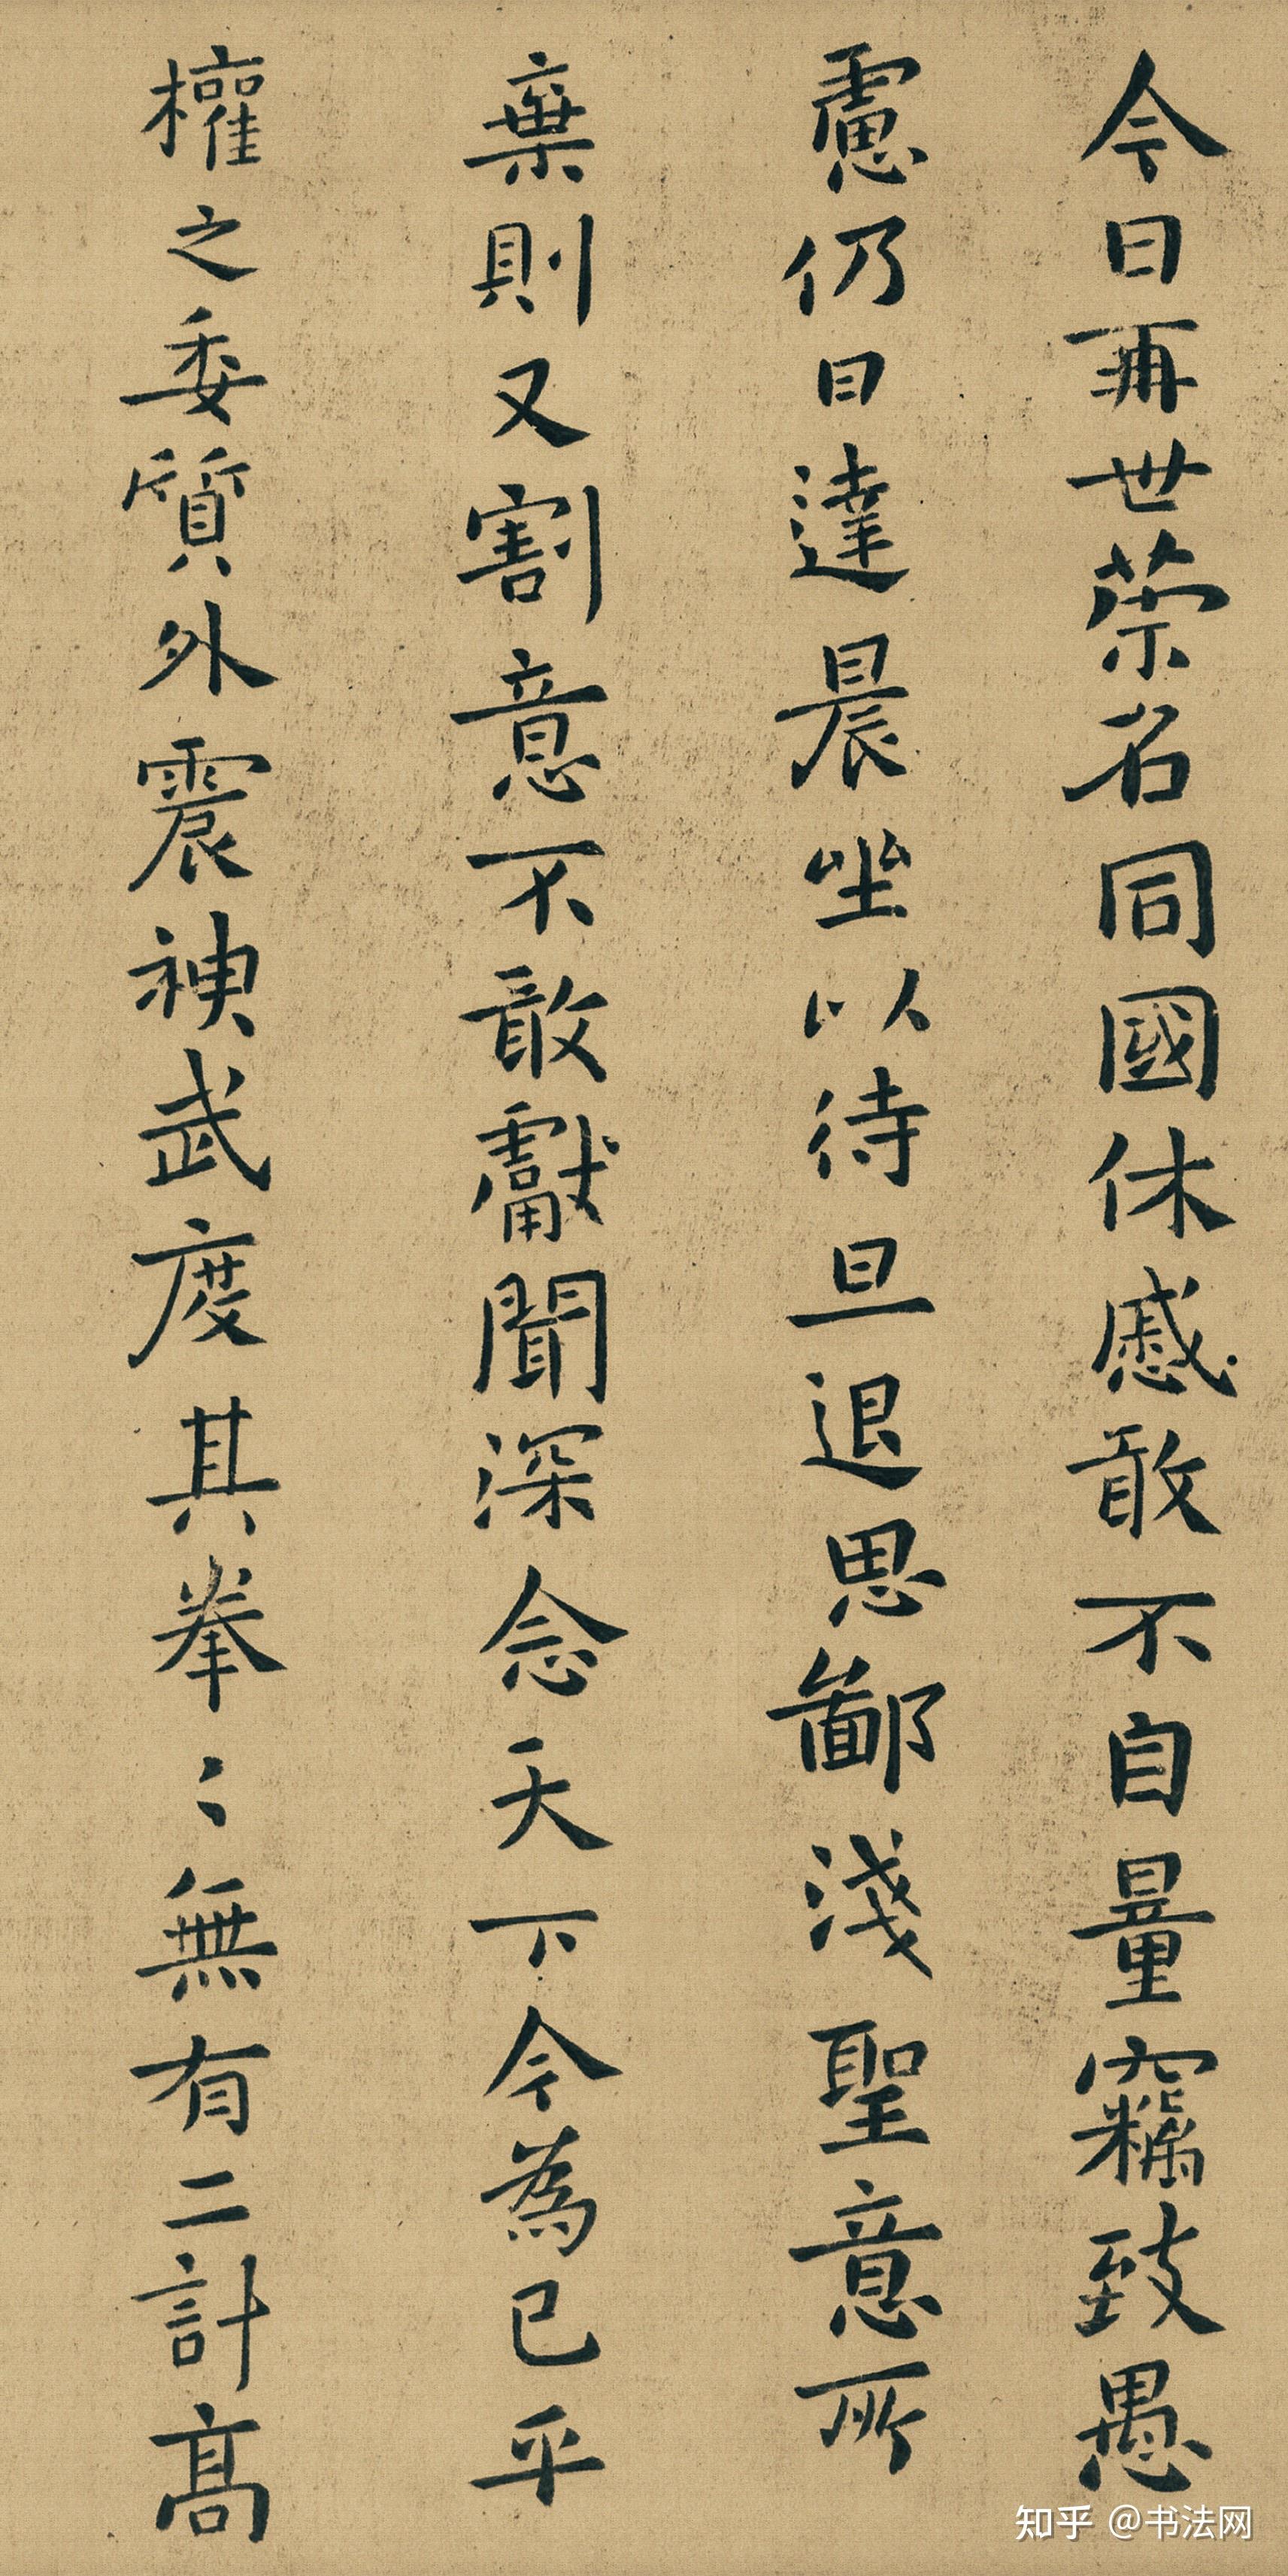 今日再世榮名同國休慼敢不自量竊致愚
慮仍日達晨坐以待旦退思鄙淺聖意所
棄則又割意不敢獻聞深念天下今為已平
權之委質外震神武度其拳〻無有二計高
知乎 @书法网